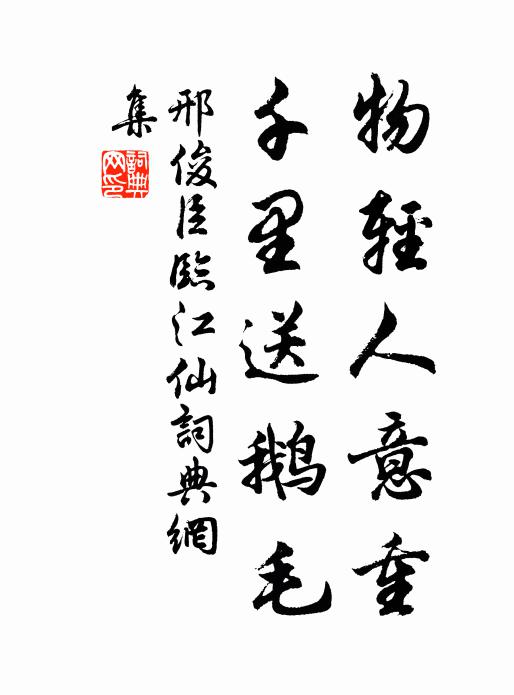 物輕人意重
千里送鵝毛
邢俊臣臨江仙詞典網
集
詞典
网印